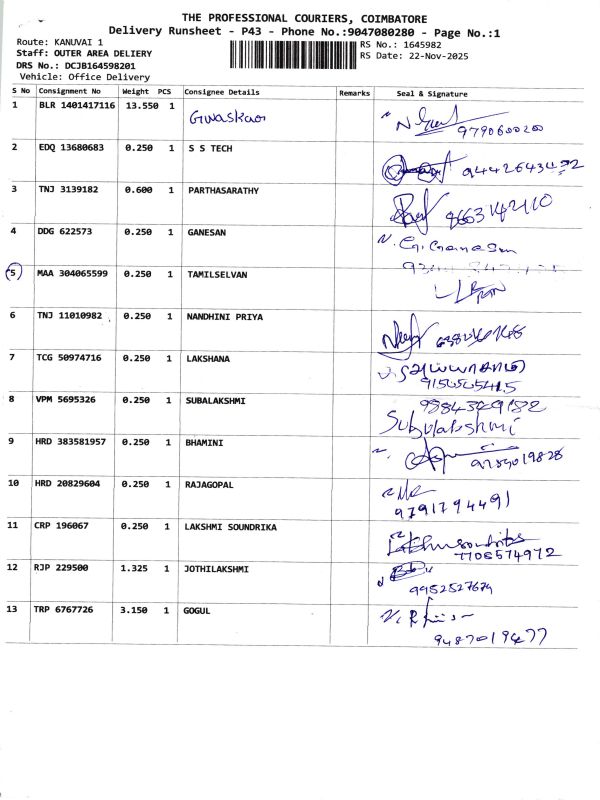 THE PROFESSIONAL COURIERS, COIMBATORE
Delivery Runsheet - P43 - Phone No.:9047080280 - Page No.:1
Route: KANUVAI 1
Staff: OUTER AREA DELIERY
DRS No.: DCJB164598201
Vehicle: Office Delivery
RS No.: 1645982
RS Date: 22-Nov-2025
S No Consignment No Weight PCS Consignee Details Remarks Seal & Signature
1 BLR 1401417116 13.550 1
9790600200
2 EDQ 13680683 0.250 1 S S TECH
3 TNJ 3139182 0.600 1 PARTHASARATHY
4 DDG 622573 0.250 1 GANESAN
5 MAA 304065599 0.250 1 TAMILSELVAN
6 TNJ 11010982 0.250 1 NANDHINI PRIYA
7 TCG 50974716 0.250 1 LAKSHANA
8 VPM 5695326 0.250 1 SUBALAKSHMI
Subulakshmi
9 HRD 383581957 0.250 1 BHAMINI
9789019828
10 HRD 20829604 0.250 1 RAJAGOPAL
9791794491
11 CRP 196067 0.250 1 LAKSHMI SOUNDRIKA
7708574972
12 RJP 229500 1.325 1 JOTHILAKSHMI
9952527674
13 TRP 6767726 3.150 1 GOGUL
9487019477